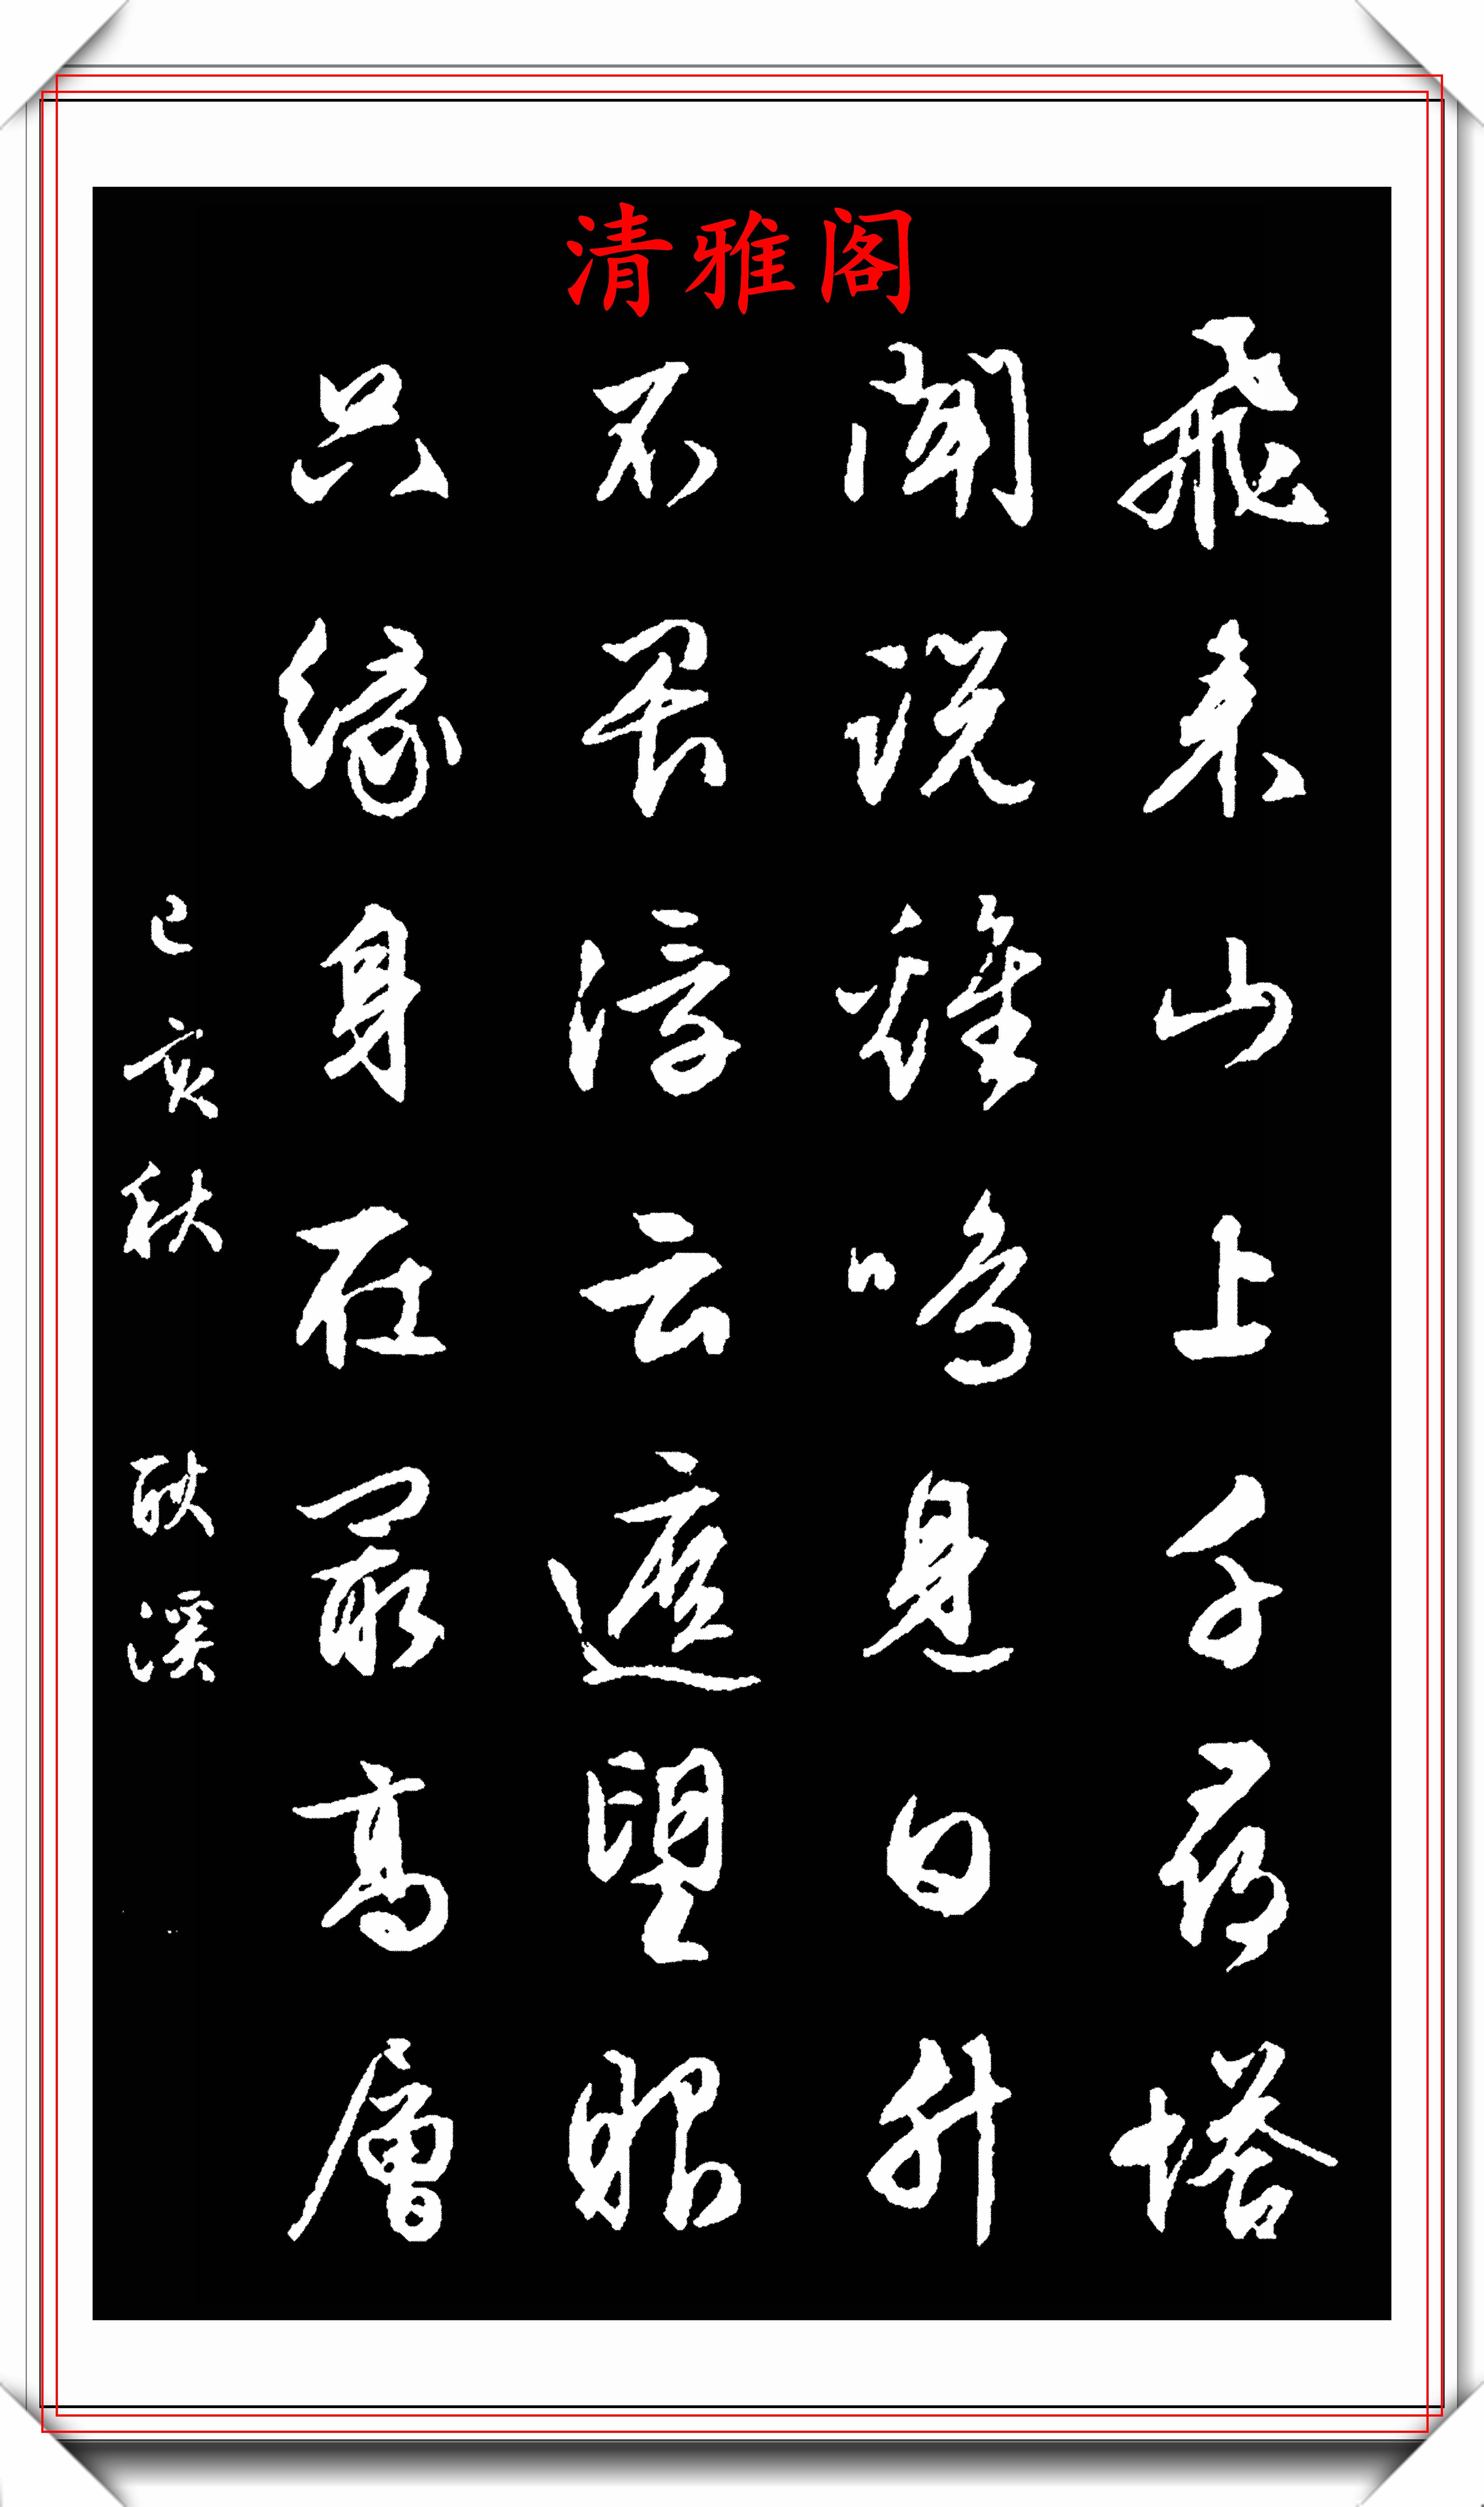 清雅阁
飛来山上千尋塔
聞說雞鳴見日升
不畏浮云遮望眼
只緣身在最高層
己亥秋 溪